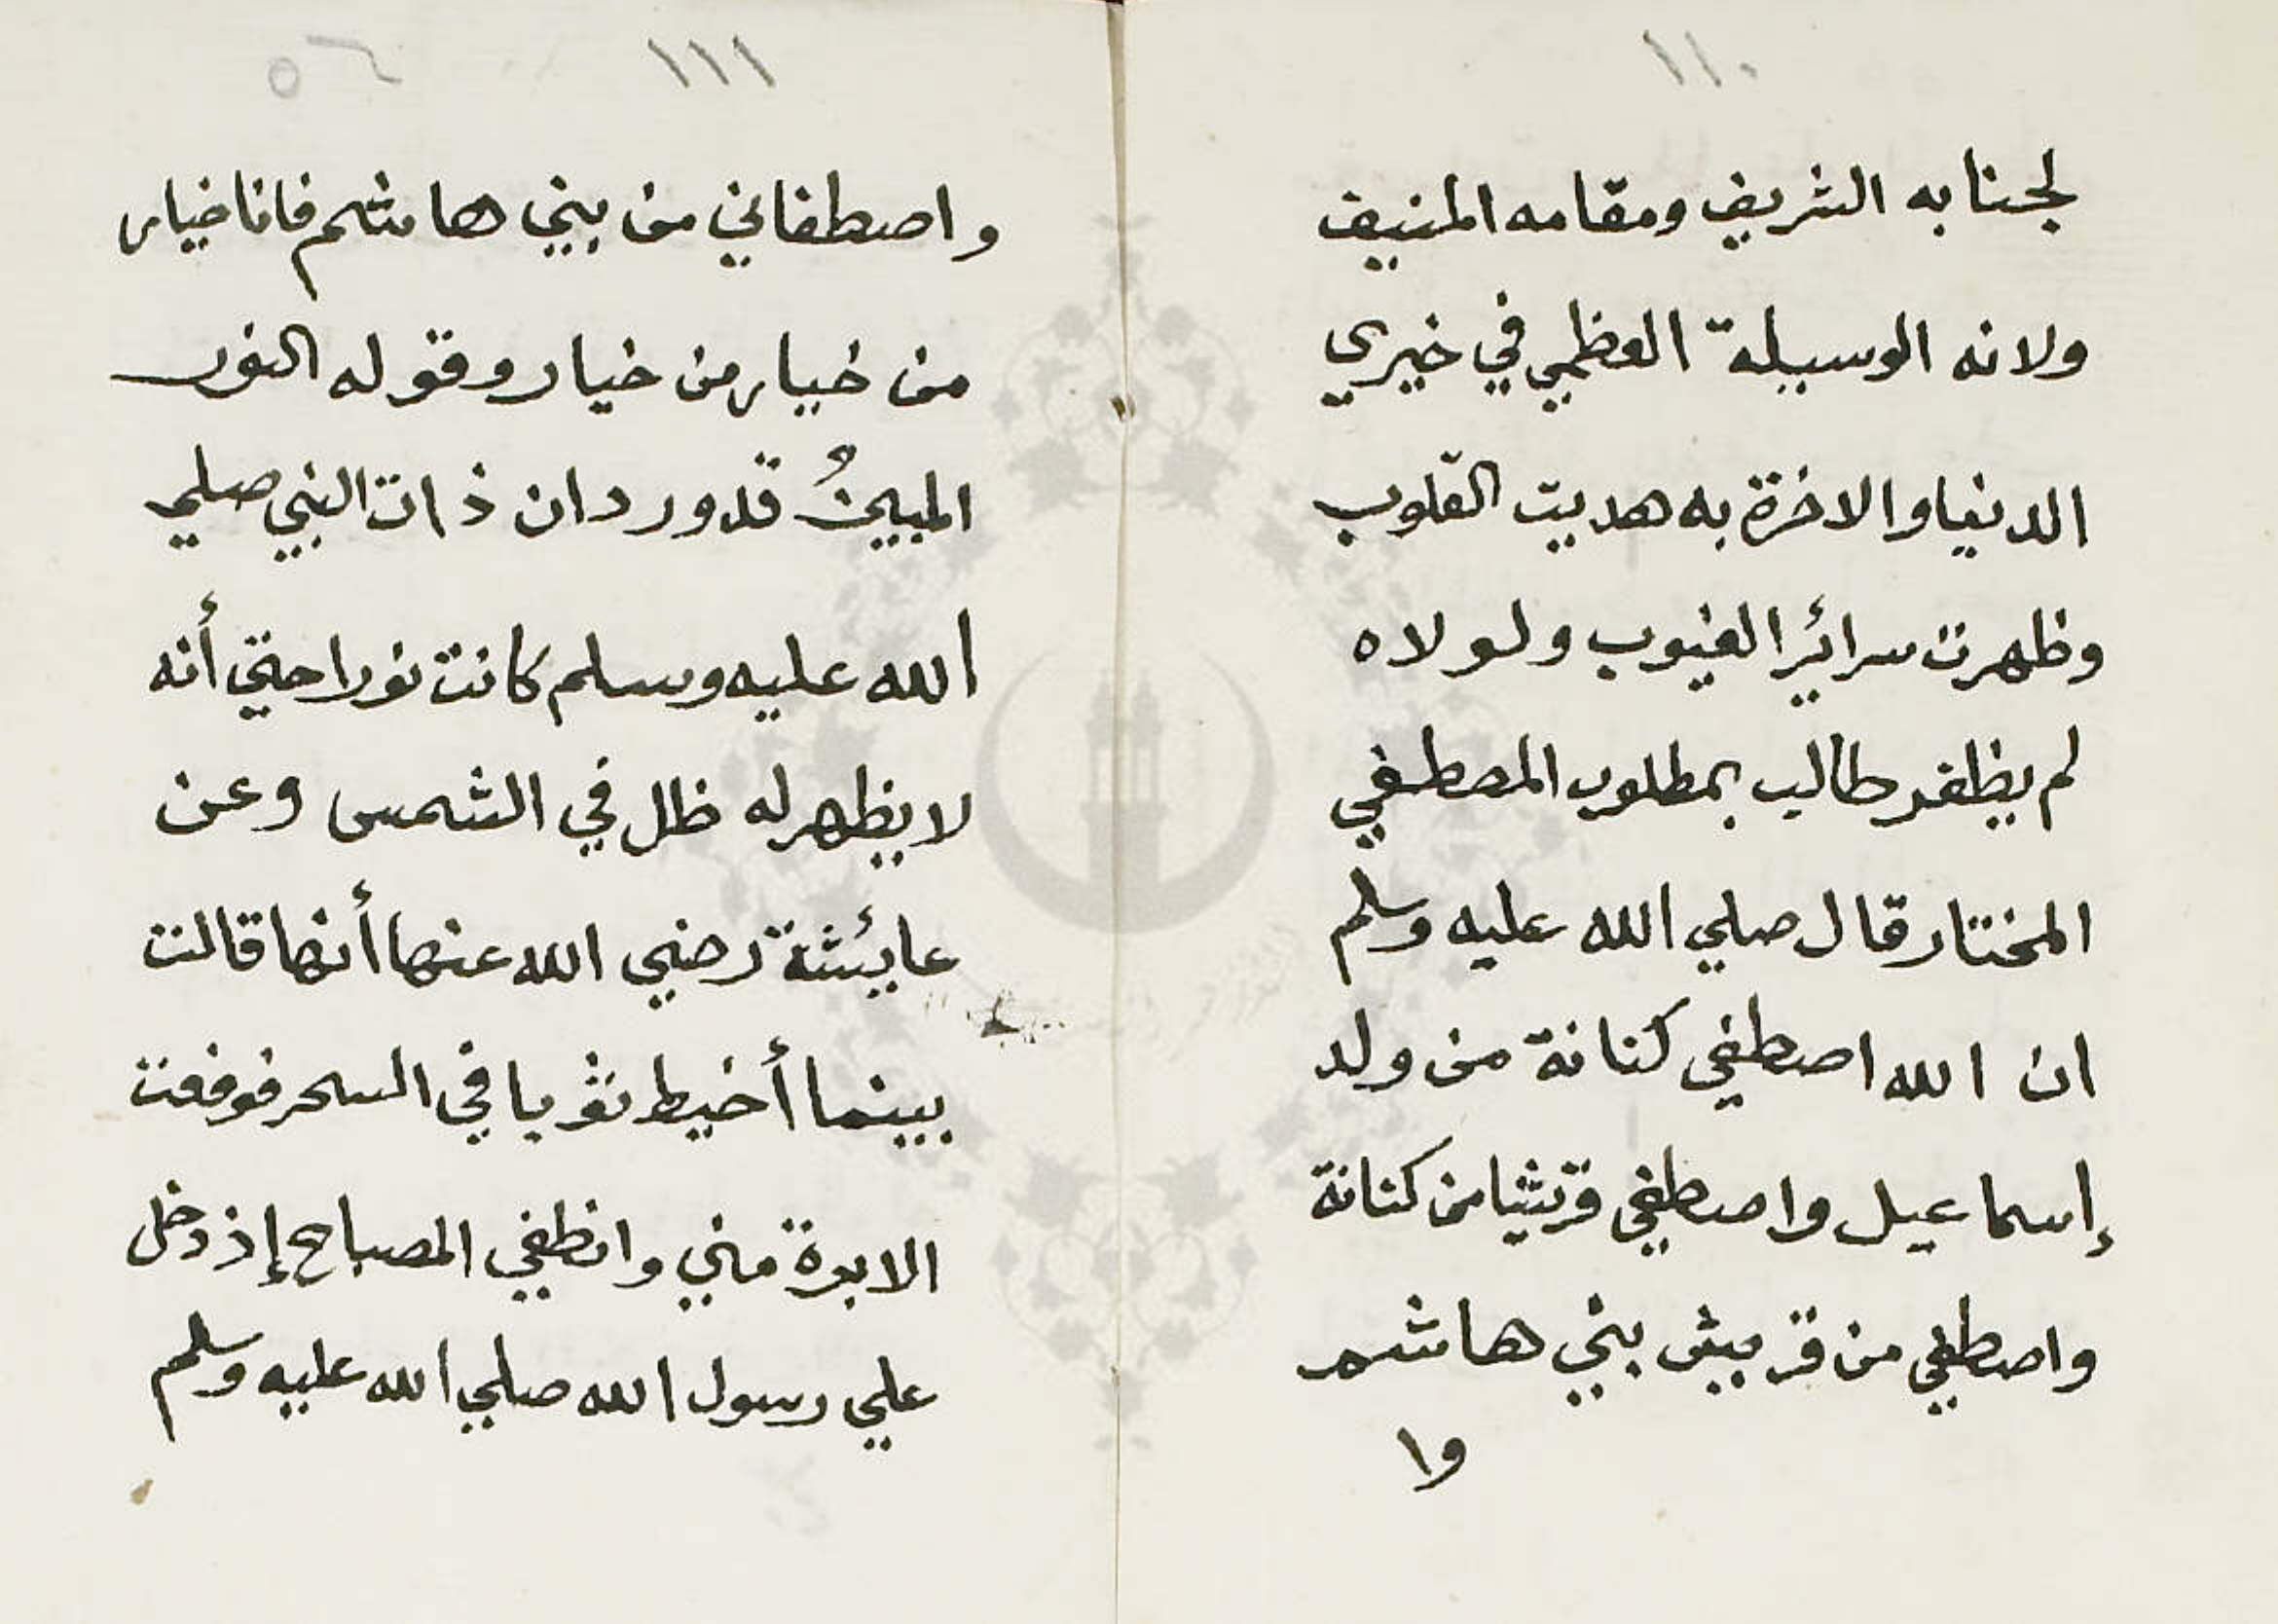 ١١٠
لجنابه الشريف ومقامه المنيف
ولانه الوسيلة العظمي في خيري
الدنيا والاخرة به هديت القلوب
وظهرت سرائر الغيوب ولولاه
لم يظفر طالب بمطلوب المصطفي
المختار قال صلي الله عليه وسلم
ان الله اصطفي كنانة من ولد
إسماعيل واصطفي قريشا من كنانة
واصطفي من قريش بني هاشم
وا
١١١
٥٦
واصطفاني من بني هاشم فانا خيار
من خيار من خيار وقوله النور
المبينُ قد ورد ان ذات النبي صلي
الله عليه وسلم كانت نورا حتي أنه
لا يظهر له ظل في الشمس وعن
عايئشة رضي الله عنها أنها قالت
بينما أخيط ثوبا في السحر فوقعت
الابرة مني وانطفي المصباح إذ دخل
علي رسول الله صلي الله عليه وسلم